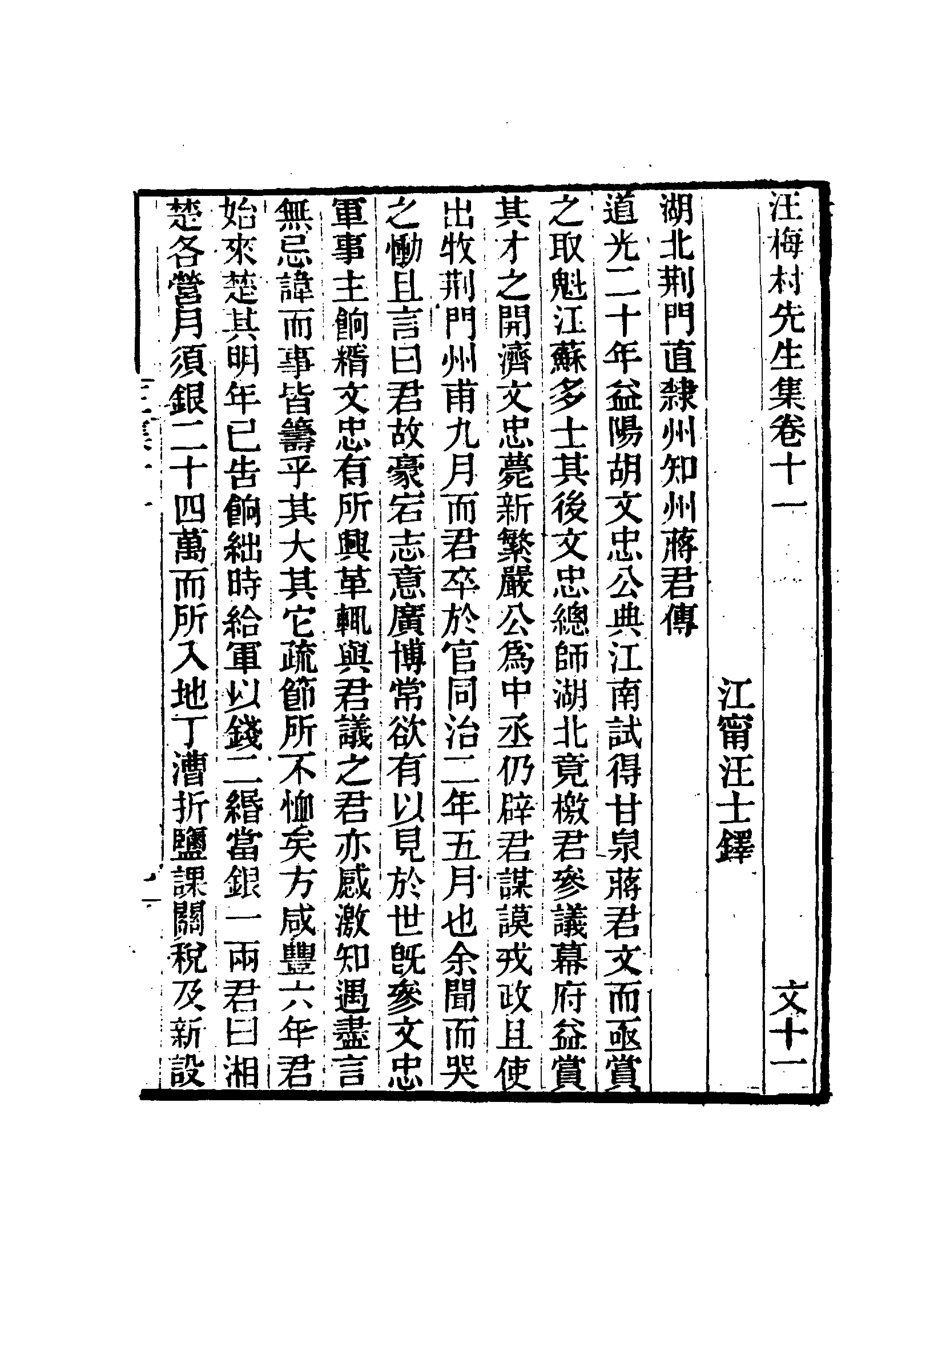 汪梅村先生集卷十一 文十一
江甯汪士鐸
湖北荆門直隸州知州蔣君傳
道光二十年益陽胡文忠公典江南試得甘泉蔣君文而亟賞
之取魁江蘇多士其後文忠總師湖北竟檄君參議幕府益賞
其才之開濟文忠薨新繁嚴公爲中丞仍辟君謀謨戎政且使
出牧荆門州甫九月而君卒於官同治二年五月也余聞而哭
之慟且言曰君故豪宕志意廣博常欲有以見於世旣參文忠
軍事主餉糈文忠有所興革輒與君議之君亦感激知遇盡言
無忌諱而事皆籌乎其大其它疏節所不恤矣方咸豐六年君
始來楚其明年已告餉絀時給軍以錢二緡當銀一兩君曰湘
楚各營月須銀二十四萬而所入地丁漕折鹽課關稅及新設